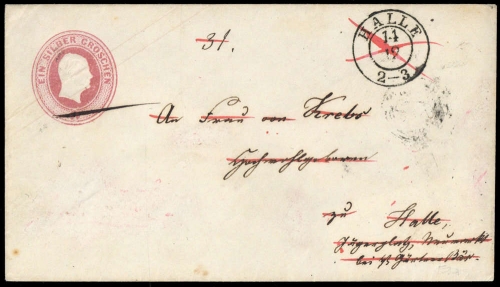 EIN SILBER GROSCHEN
31.
HALLE
14
12
2-3
An Frau von Krebs
Hochwohlgeboren
zu Halle,
Jägerplatz, Neumarkt
bei